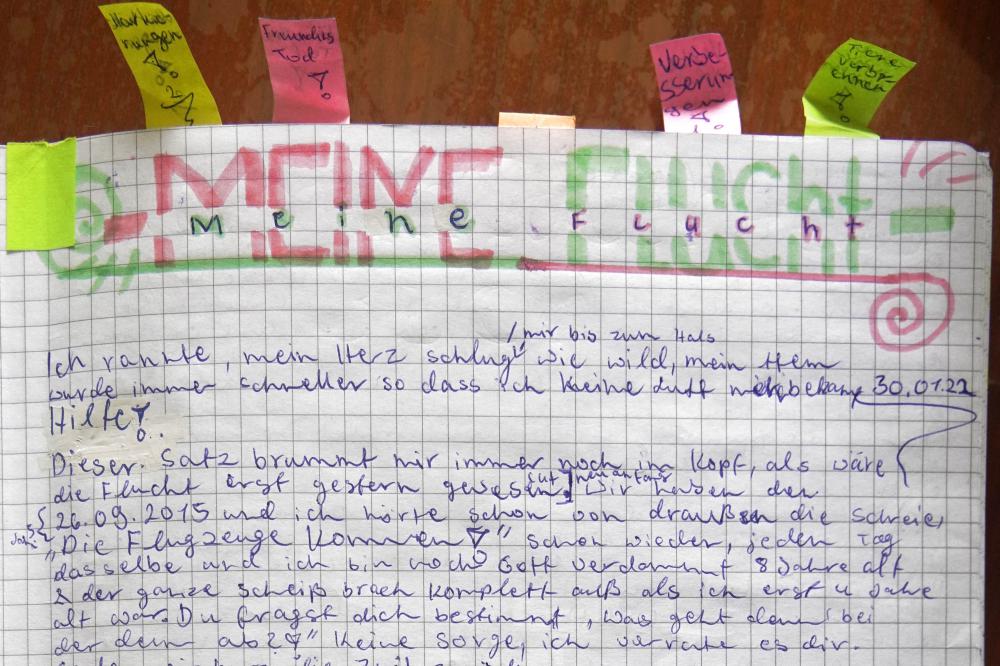 Markie-
rungen!
Freundins
Tod!
Verbe-
sserun
gen!
Tiere
verbr-
ennen!
MEINE FLUCHT
Meine Flucht
/mir bis zum Hals
Ich rannte, mein Herz schlug wie wild, mein Atem
wurde immer schneller so dass ich keine Luft mehr bekam, 30.01.22
Hilfe!
Dieser Satz brummt mir immer noch im Kopf, als wäre
die Flucht erst gestern gewesen. Wir haben den
26.09.2015 und ich hörte schon von draußen die Schreie,
„Die Flugzeuge kommen!" schon wieder, jeden Tag
das selbe und ich bin noch Gott verdammt 8 Jahre alt
& der ganze Scheiß brach komplett auß als ich erst 4 Jahre
alt war. Du fragst dich bestimmt, was geht denn bei
der denn ab?!" Keine Sorge, ich verrate es dir.